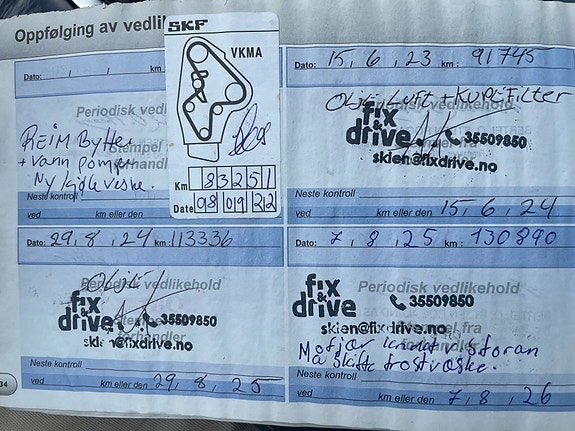 Oppfølging av vedlik
SKF
VKMA
Km 83251
Date 08 09 22
Dato: / / km:
Periodisk vedl
REIM Bytte
+ vann pumpe
Ny kjøleveske.
Neste kontroll
ved km eller den
Dato: 15, 6, 23 km: 91745
Olje, Luft + Kupe Filter
Periodisk vedlikehold
fix & drive 35509850
skien@fixdrive.no
Neste kontroll
ved km eller den 15, 6, 24
Dato: 29, 8, 24 km: 113336
Periodisk vedlikehold
fix & drive 35509850
skien@fixdrive.no
forhandler
Neste kontroll
ved km eller den 29, 8, 25
Dato: 7, 8, 25 km: 130890
Periodisk vedlikehold
fix & drive 35509850
skien@fixdrive.no
Må skifte frostvæske.
Neste kontroll
ved km eller den 7, 8, 26
34